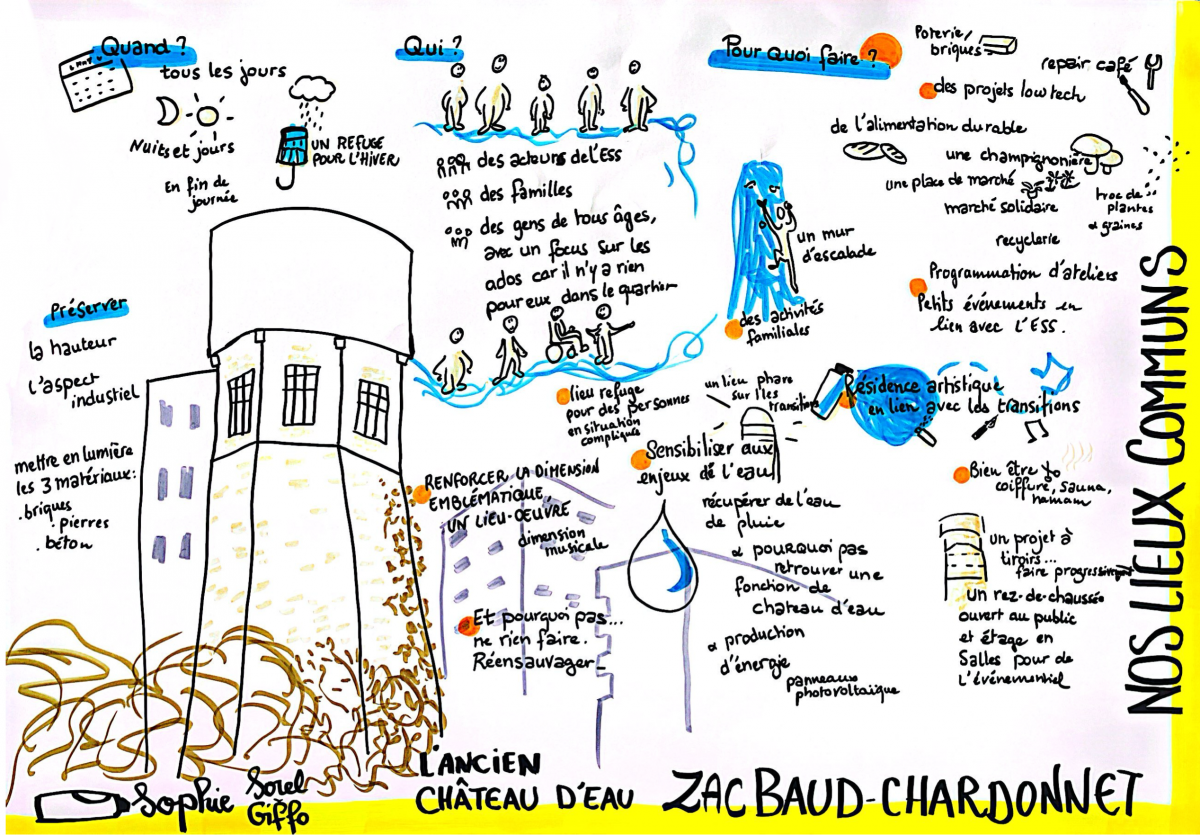 Quand ?
tous les jours
Nuits et jours
En fin de
journée
UN REFUGE
POUR L'HIVER
Préserver
la hauteur
l'aspect
industiel
mettre en lumière
les 3 matériaux:
.briques
.pierres
.béton
Qui ?
des acteurs de l'Ess
des familles
des gens de tous âges,
avec un focus sur les
ados car il n'y a rien
pour eux dans le quartier
Pour quoi faire ?
Poterie/
briques
repair café
des projets low tech
de l'alimentation durable
une champignonière
une place de marché
marché solidaire
troc de
plantes
et graines
recyclerie
Programmation d'ateliers
Petits événements en
lien avec L'ESS.
un mur
d'escalade
des activités
familiales
lieu refuge
pour des personnes
en situation
compliquée
un lieu phare
sur l les
transitions
Résidence artistique
en lien avec les transitions
Sensibiliser aux
enjeux de l'eau
récupérer de l'eau
de pluie
et pourquoi pas
retrouver une
fonction de
chateau d'eau
et production
d'énergie
panneaux
photovoltaïque
Bien être
coiffure, sauna,
hamam
un projet à
tiroirs...
faire progressivement
un rez-de-chaussée
ouvert au public
et étage en
Salles pour de
L'événementiel
RENFORCER LA DIMENSION
EMBLÉMATIQUE,
UN LIEU-OEUVRE
dimension
musicale
Et pourquoi pas...
ne rien faire.
Réensauvager_
L'ANCIEN
CHÂTEAU D'EAU
ZAC BAUD-CHARDONNET
NOS LIEUX COMMUNS
Sophie
Sorel
Giffo